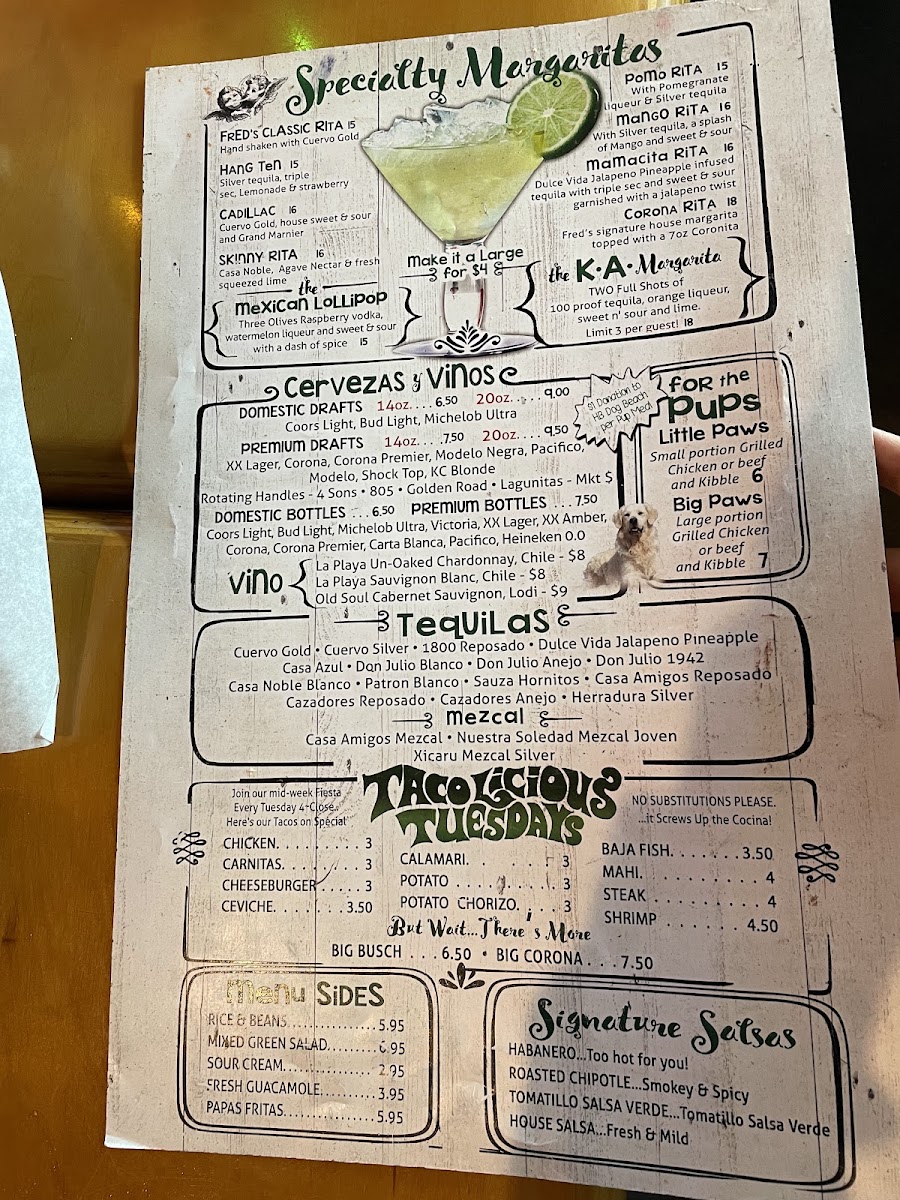 Specialty Margaritas
FRED'S CLASSIC RITA 15
Hand shaken with Cuervo Gold
HANG TEN 15
Silver tequila, triple
sec, Lemonade & strawberry
CADILLAC 16
Cuervo Gold, house sweet & sour
and Grand Marnier
SKINNY RITA 16
Casa Noble, Agave Nectar & fresh
squeezed lime
the
MEXICAN LOLLIPOP
Three Olives Raspberry vodka,
watermelon liqueur and sweet & sour
with a dash of spice 15
Make it a Large
for $4
POMO RITA 15
With Pomegranate
liqueur & Silver tequila
MANGO RITA 16
With Silver tequila, a splash
of Mango and sweet & sour
MAMACITA RITA 16
Dulce Vida Jalapeno Pineapple infused
tequila with triple sec and sweet & sour
garnished with a jalapeno twist
CORONA RITA 18
Fred's signature house margarita
topped with a 7oz Coronita
the K•A•Margarita
TWO Full Shots of
100 proof tequila, orange liqueur,
sweet n' sour and lime.
Limit 3 per guest! 18
CERVEZAS y VINOS
DOMESTIC DRAFTS 14oz....6.50 20oz....9.00
Coors Light, Bud Light, Michelob Ultra
PREMIUM DRAFTS 14oz....7.50 20oz....9.50
XX Lager, Corona, Corona Premier, Modelo Negra, Pacifico,
Modelo, Shock Top, KC Blonde
Rotating Handles - 4 Sons • 805 • Golden Road • Lagunitas - Mkt $
DOMESTIC BOTTLES ...6.50 PREMIUM BOTTLES ....7.50
Coors Light, Bud Light, Michelob Ultra, Victoria, XX Lager, XX Amber,
Corona, Corona Premier, Carta Blanca, Pacifico, Heineken 0.0
VINO
La Playa Un-Oaked Chardonnay, Chile - $8
La Playa Sauvignon Blanc, Chile - $8
Old Soul Cabernet Sauvignon, Lodi - $9
$1 Donation to
HB Dog Beach
per Pup Meal
FOR the
Pups
Little Paws
Small portion Grilled
Chicken or beef
and Kibble 6
Big Paws
Large portion
Grilled Chicken
or beef
and Kibble 7
TEQUILAS
Cuervo Gold • Cuervo Silver • 1800 Reposado • Dulce Vida Jalapeno Pineapple
Casa Azul • Don Julio Blanco • Don Julio Anejo • Don Julio 1942
Casa Noble Blanco • Patron Blanco • Sauza Hornitos • Casa Amigos Reposado
Cazadores Reposado • Cazadores Anejo • Herradura Silver
MEZCAL
Casa Amigos Mezcal • Nuestra Soledad Mezcal Joven
Xicaru Mezcal Silver
TACOLICIOUS
TUESDAYS
Join our mid-week Fiesta
Every Tuesday 4-Close.
Here's our Tacos on Special
NO SUBSTITUTIONS PLEASE.
...it Screws Up the Cocina!
CHICKEN.........3
CARNITAS.........3
CHEESEBURGER.....3
CEVICHE.......3.50
CALAMARI.........3
POTATO..........3
POTATO CHORIZO....3
BAJA FISH.......3.50
MAHI...........4
STEAK..........4
SHRIMP........4.50
But Wait...There's More
BIG BUSCH...6.50 • BIG CORONA...7.50
Menu SIDES
RICE & BEANS...............5.95
MIXED GREEN SALAD.........6.95
SOUR CREAM................2.95
FRESH GUACAMOLE..........3.95
PAPAS FRITAS...............5.95
Signature Salsas
HABANERO...Too hot for you!
ROASTED CHIPOTLE...Smokey & Spicy
TOMATILLO SALSA VERDE...Tomatillo Salsa Verde
HOUSE SALSA...Fresh & Mild